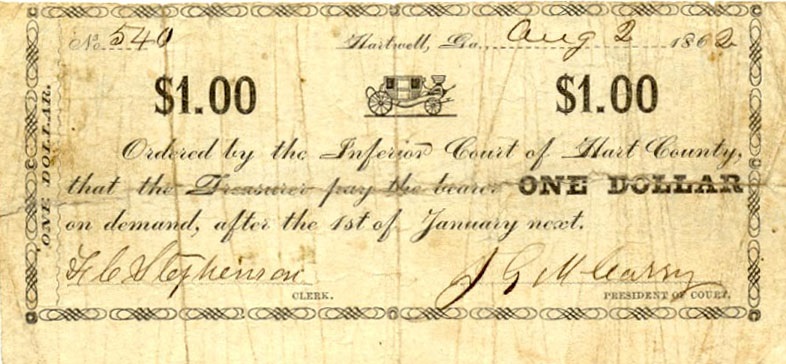 No. 540 Hartwell, Ga. Aug 2 1862
$1.00 $1.00
ONE DOLLAR.
Ordered by the Inferior Court of Hart County,
that the Treasurer pay the bearer ONE DOLLAR
on demand, after the 1st of January next.
F C Stephenson
CLERK.
J G McCarry
PRESIDENT OF COURT.